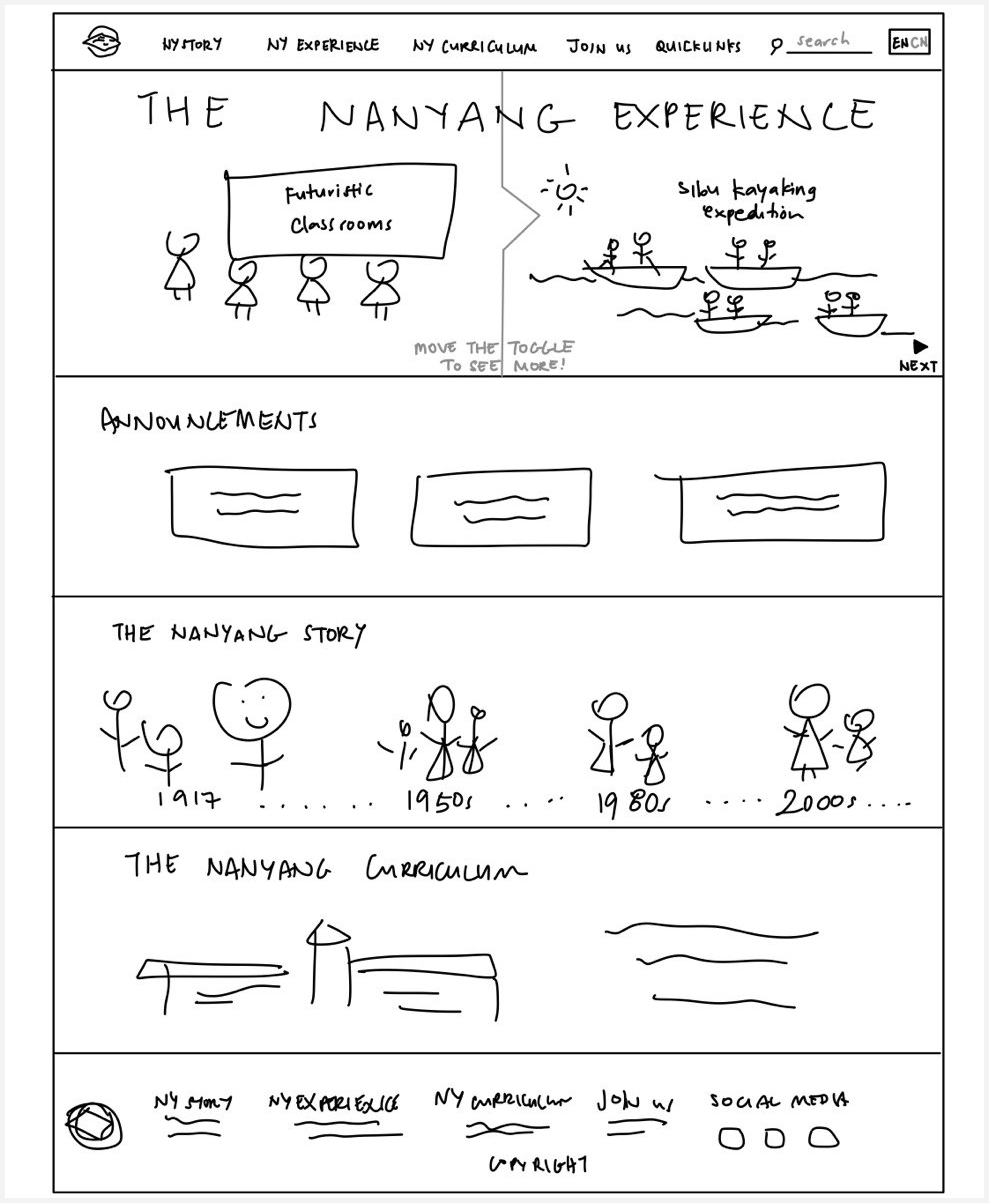 NY STORY
NY EXPERIENCE
NY CURRICULUM
JOIN US
QUICKLINKS
search
EN CN
THE NANYANG EXPERIENCE
Futuristic
Classrooms
Sibu kayaking
expedition
MOVE THE TOGGLE
TO SEE MORE!
NEXT
ANNOUNCEMENTS
THE NANYANG STORY
1917 ....... 1950s ..... 1980s .... 2000s ....
THE NANYANG CURRICULUM
NY STORY
NY EXPERIENCE
NY CURRICULUM
JOIN US
SOCIAL MEDIA
COPYRIGHT